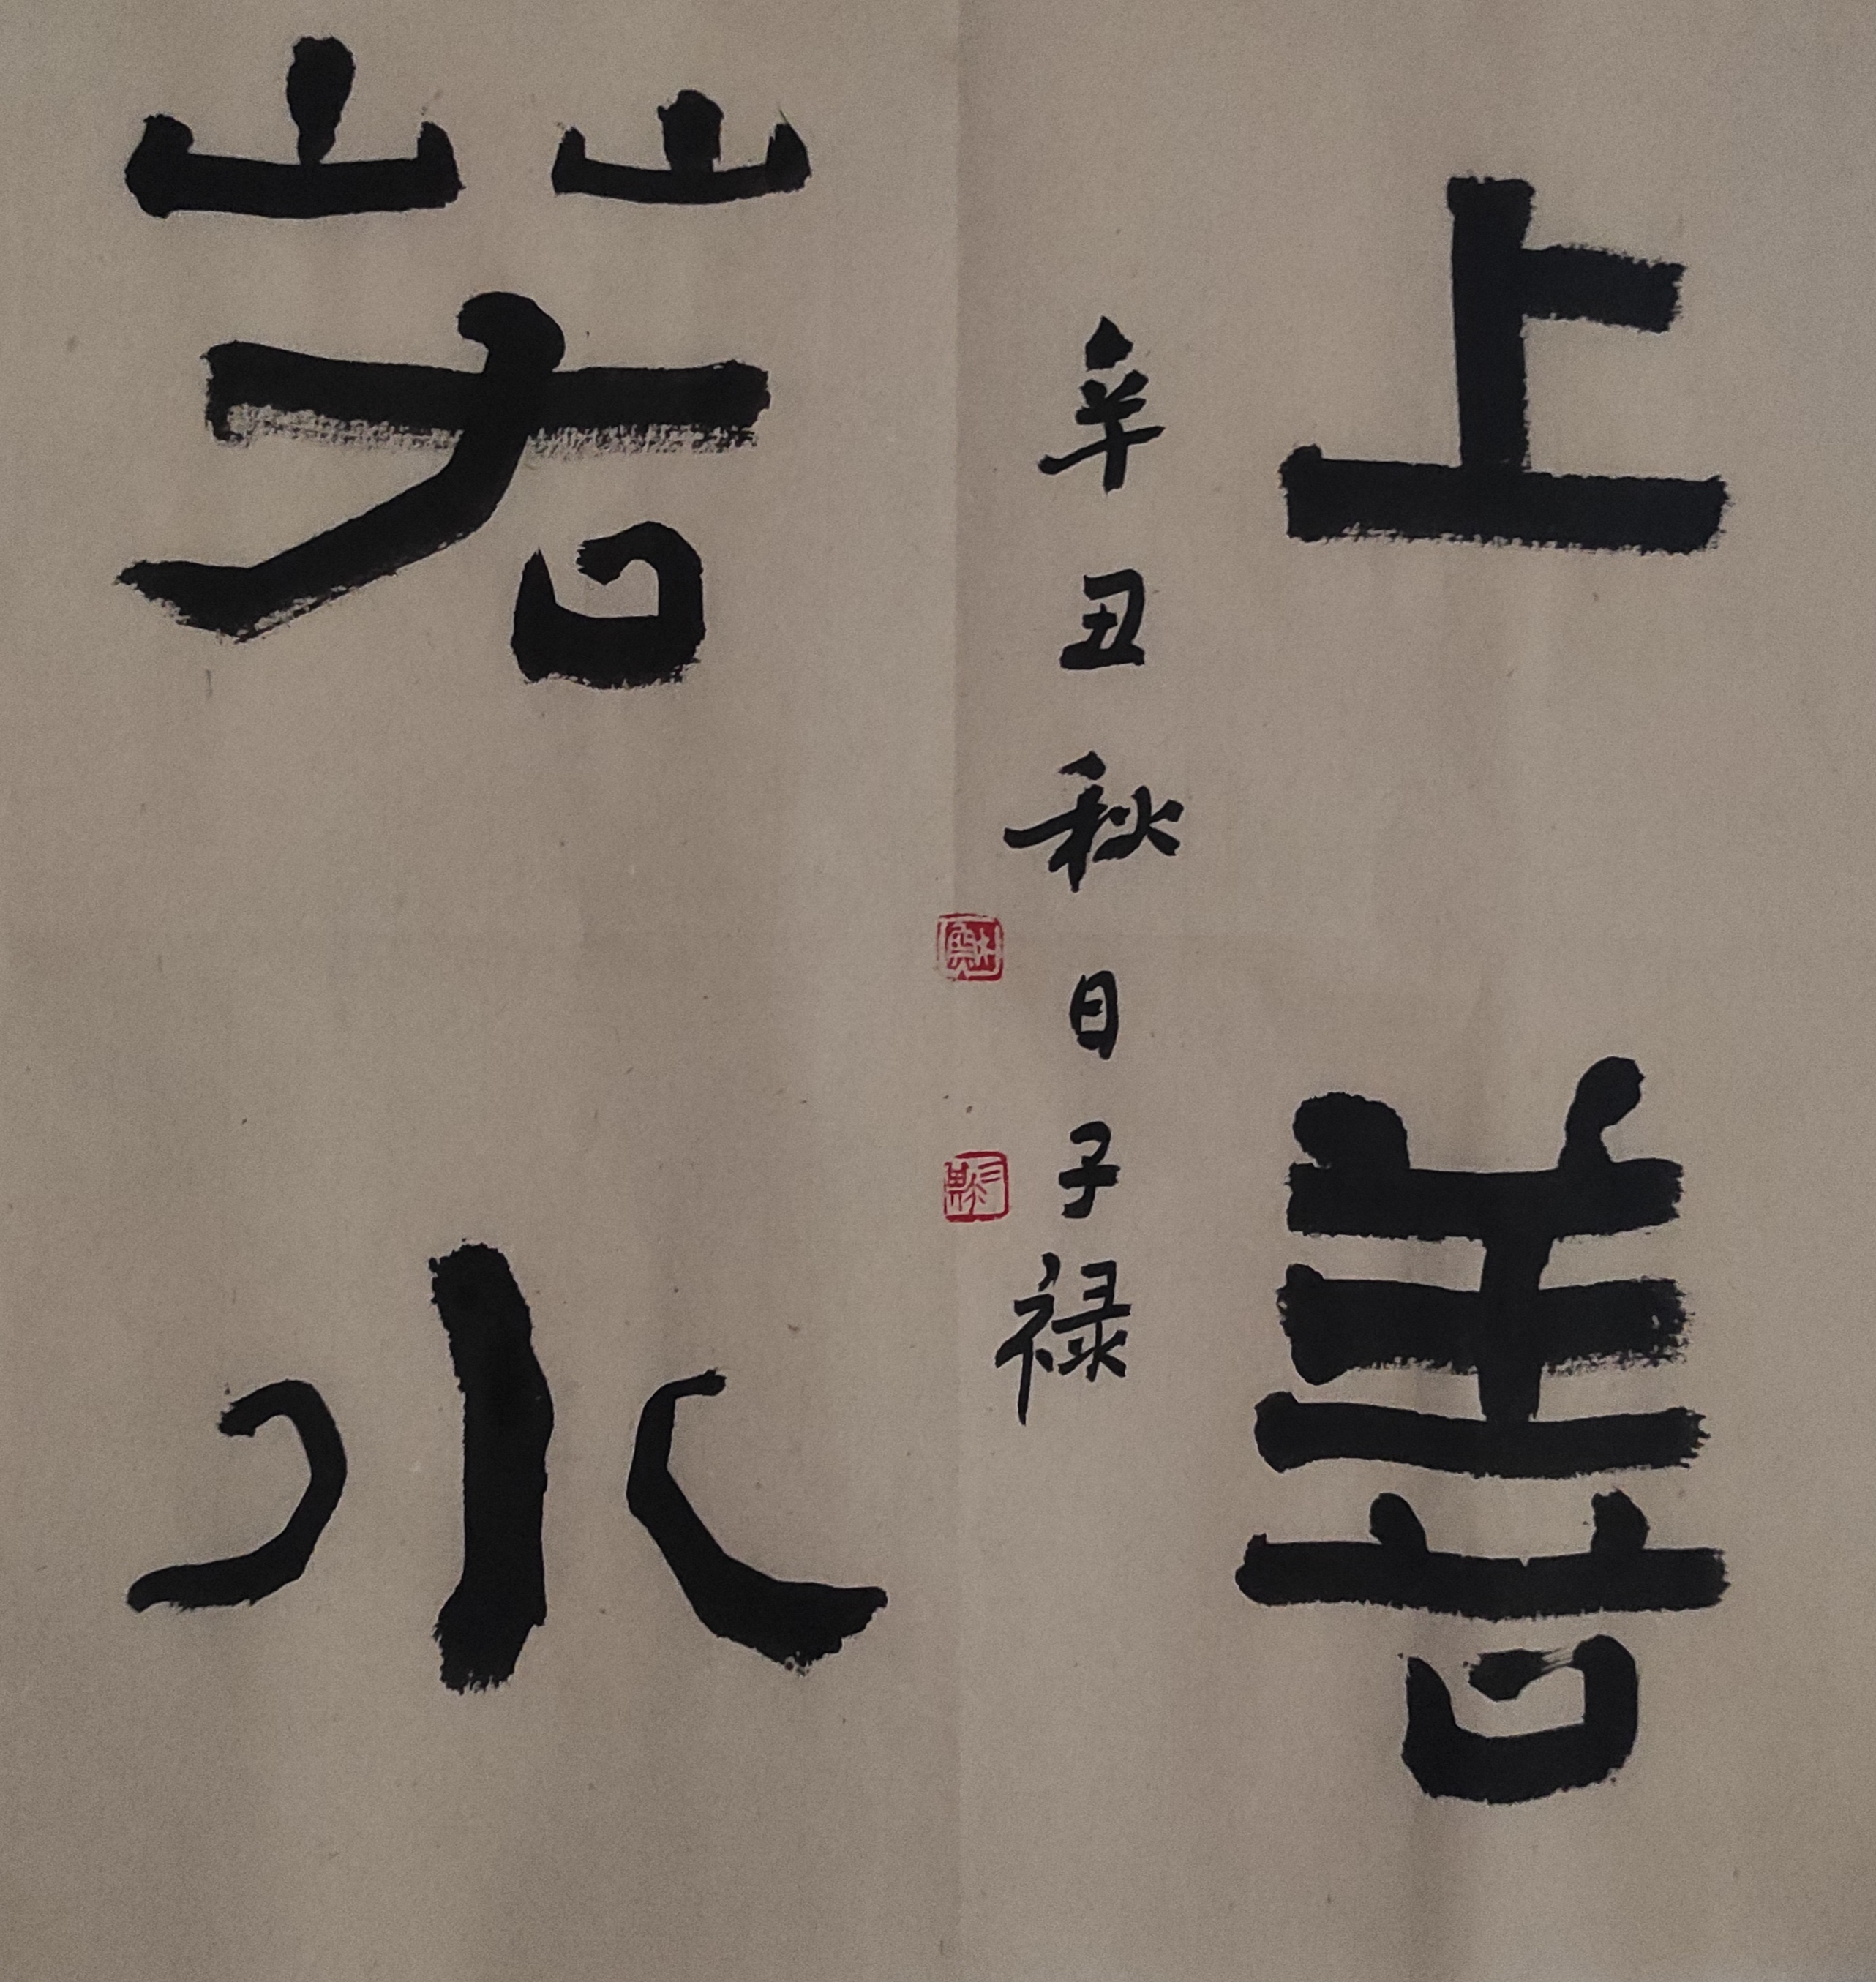 上善
辛丑秋日子禄
若水